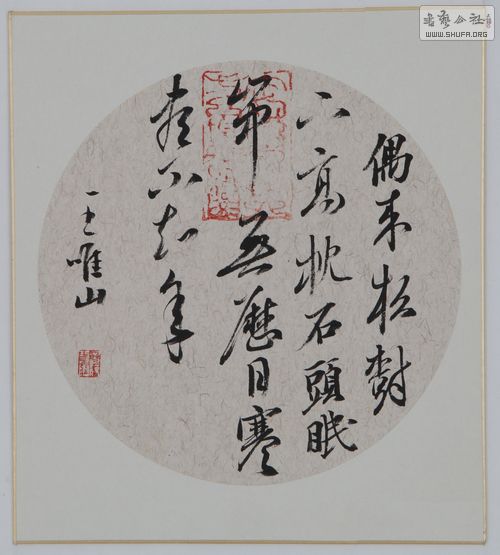 偶来松樹
下高枕石頭眠
山中無曆日寒
盡不知年
王唯山
書藝公社
WWW.SHUFA.ORG